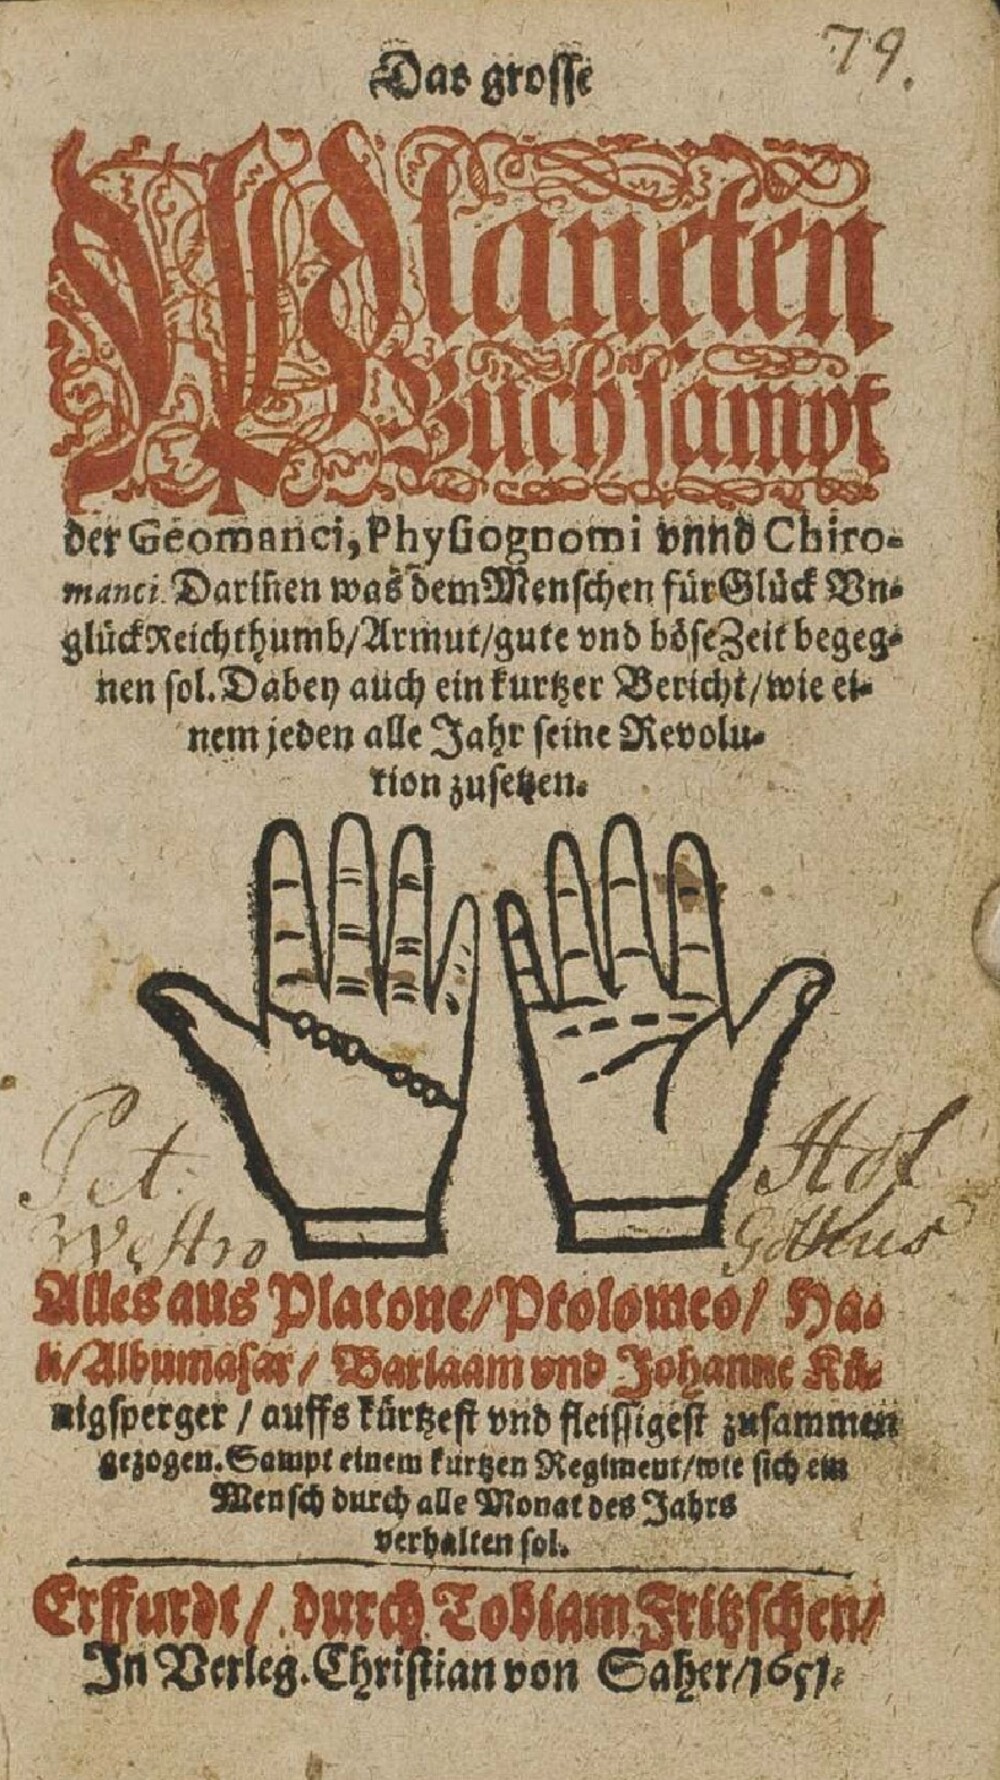 79.
Das grosse
Planeten
Buch sampt
der Geomanci, Physiognomi vnnd Chiro-
manci. Darinen was dem Menschen für Glück Vn-
glück Reichthumb/Armut/gute vnd böse Zeit begeg-
nen sol. Dabey auch ein kurtzer Bericht/wie ei-
nem jeden alle Jahr seine Revolu-
tion zusetzen.
Pet. Hof
Westro Gothus
Alles aus Platone/Ptolomeo/ Ha-
li/Albumasar/ Barlaam vnd Johanne Kü-
nigsperger / auffs kürtzest vnd fleissigest zusammen
gezogen. Sampt einem kurtzen Regiment/wie sich ein
Mensch durch alle Monat des Jahrs
verhalten sol.
Erffurdt/ durch Tobiam Fritzschen/
In Verleg. Christian von Saher/1651.